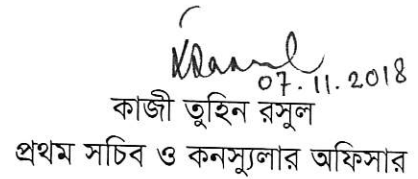 07.11.2018
কাজী তুহিন রসুল
প্রথম সচিব ও কনস্যুলার অফিসার